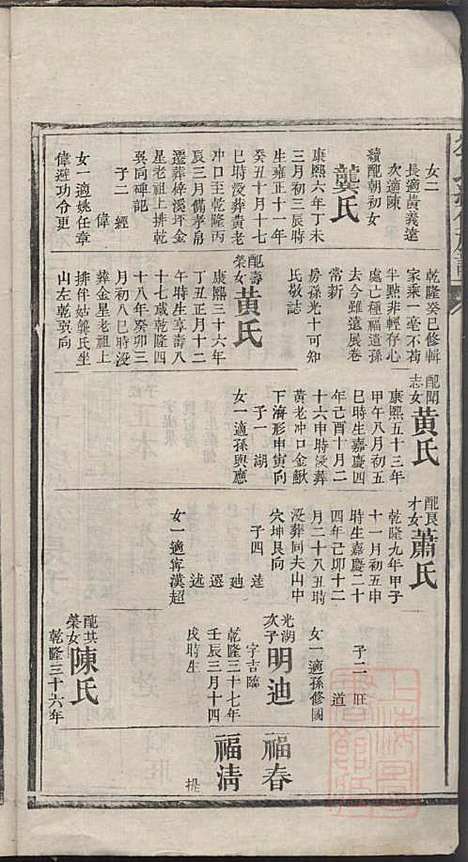 女二
長適黃義遠
次適陳
續配朝初女
龔氏
康熙六年丁未
三月初三辰時
生雍正十一年
癸丑十月十七
巳時歿葬黃老
冲口至乾隆丙
辰三月備孝帛
遷葬梓溪坪金
星老祖上排乾
巽同碑記
子二 經
偉
女一適姚任章
偉遊功令更
乾隆癸巳修輯
家乘一毫不苟
半點非輕存心
處亡種福遺孫
去今雖遠展卷
常新
房孫光十可知
氏敬誌
配壽榮女
黃氏
康熙三十六年
丁丑正月十二
午時生享壽八
十七歲乾隆四
十八年癸卯三
月初八巳時歿
葬金星老祖上
排伴姑龔氏坐
山左乾巽向
配開志女
黃氏
康熙五十三年
甲午八月初五
巳時生嘉慶四
年己酉十月二
十六申時歿葬
黃老冲口金鰍
下濟形申寅向
子一 湖
女一適孫與應
配良才女
蕭氏
乾隆九年甲子
十一月初五申
時生嘉慶二十
四年己卯十二
月二十八丑時
歿葬同夫山中
穴坤艮向
子四 達
迪
選
述
女一適甯漢超
子二 旺
道
女一適孫修國
光湖次子
明迪
字吉臨
乾隆三十七年
壬辰三月十四
戌時生
配其榮女
陳氏
乾隆三十六年
福春
福清